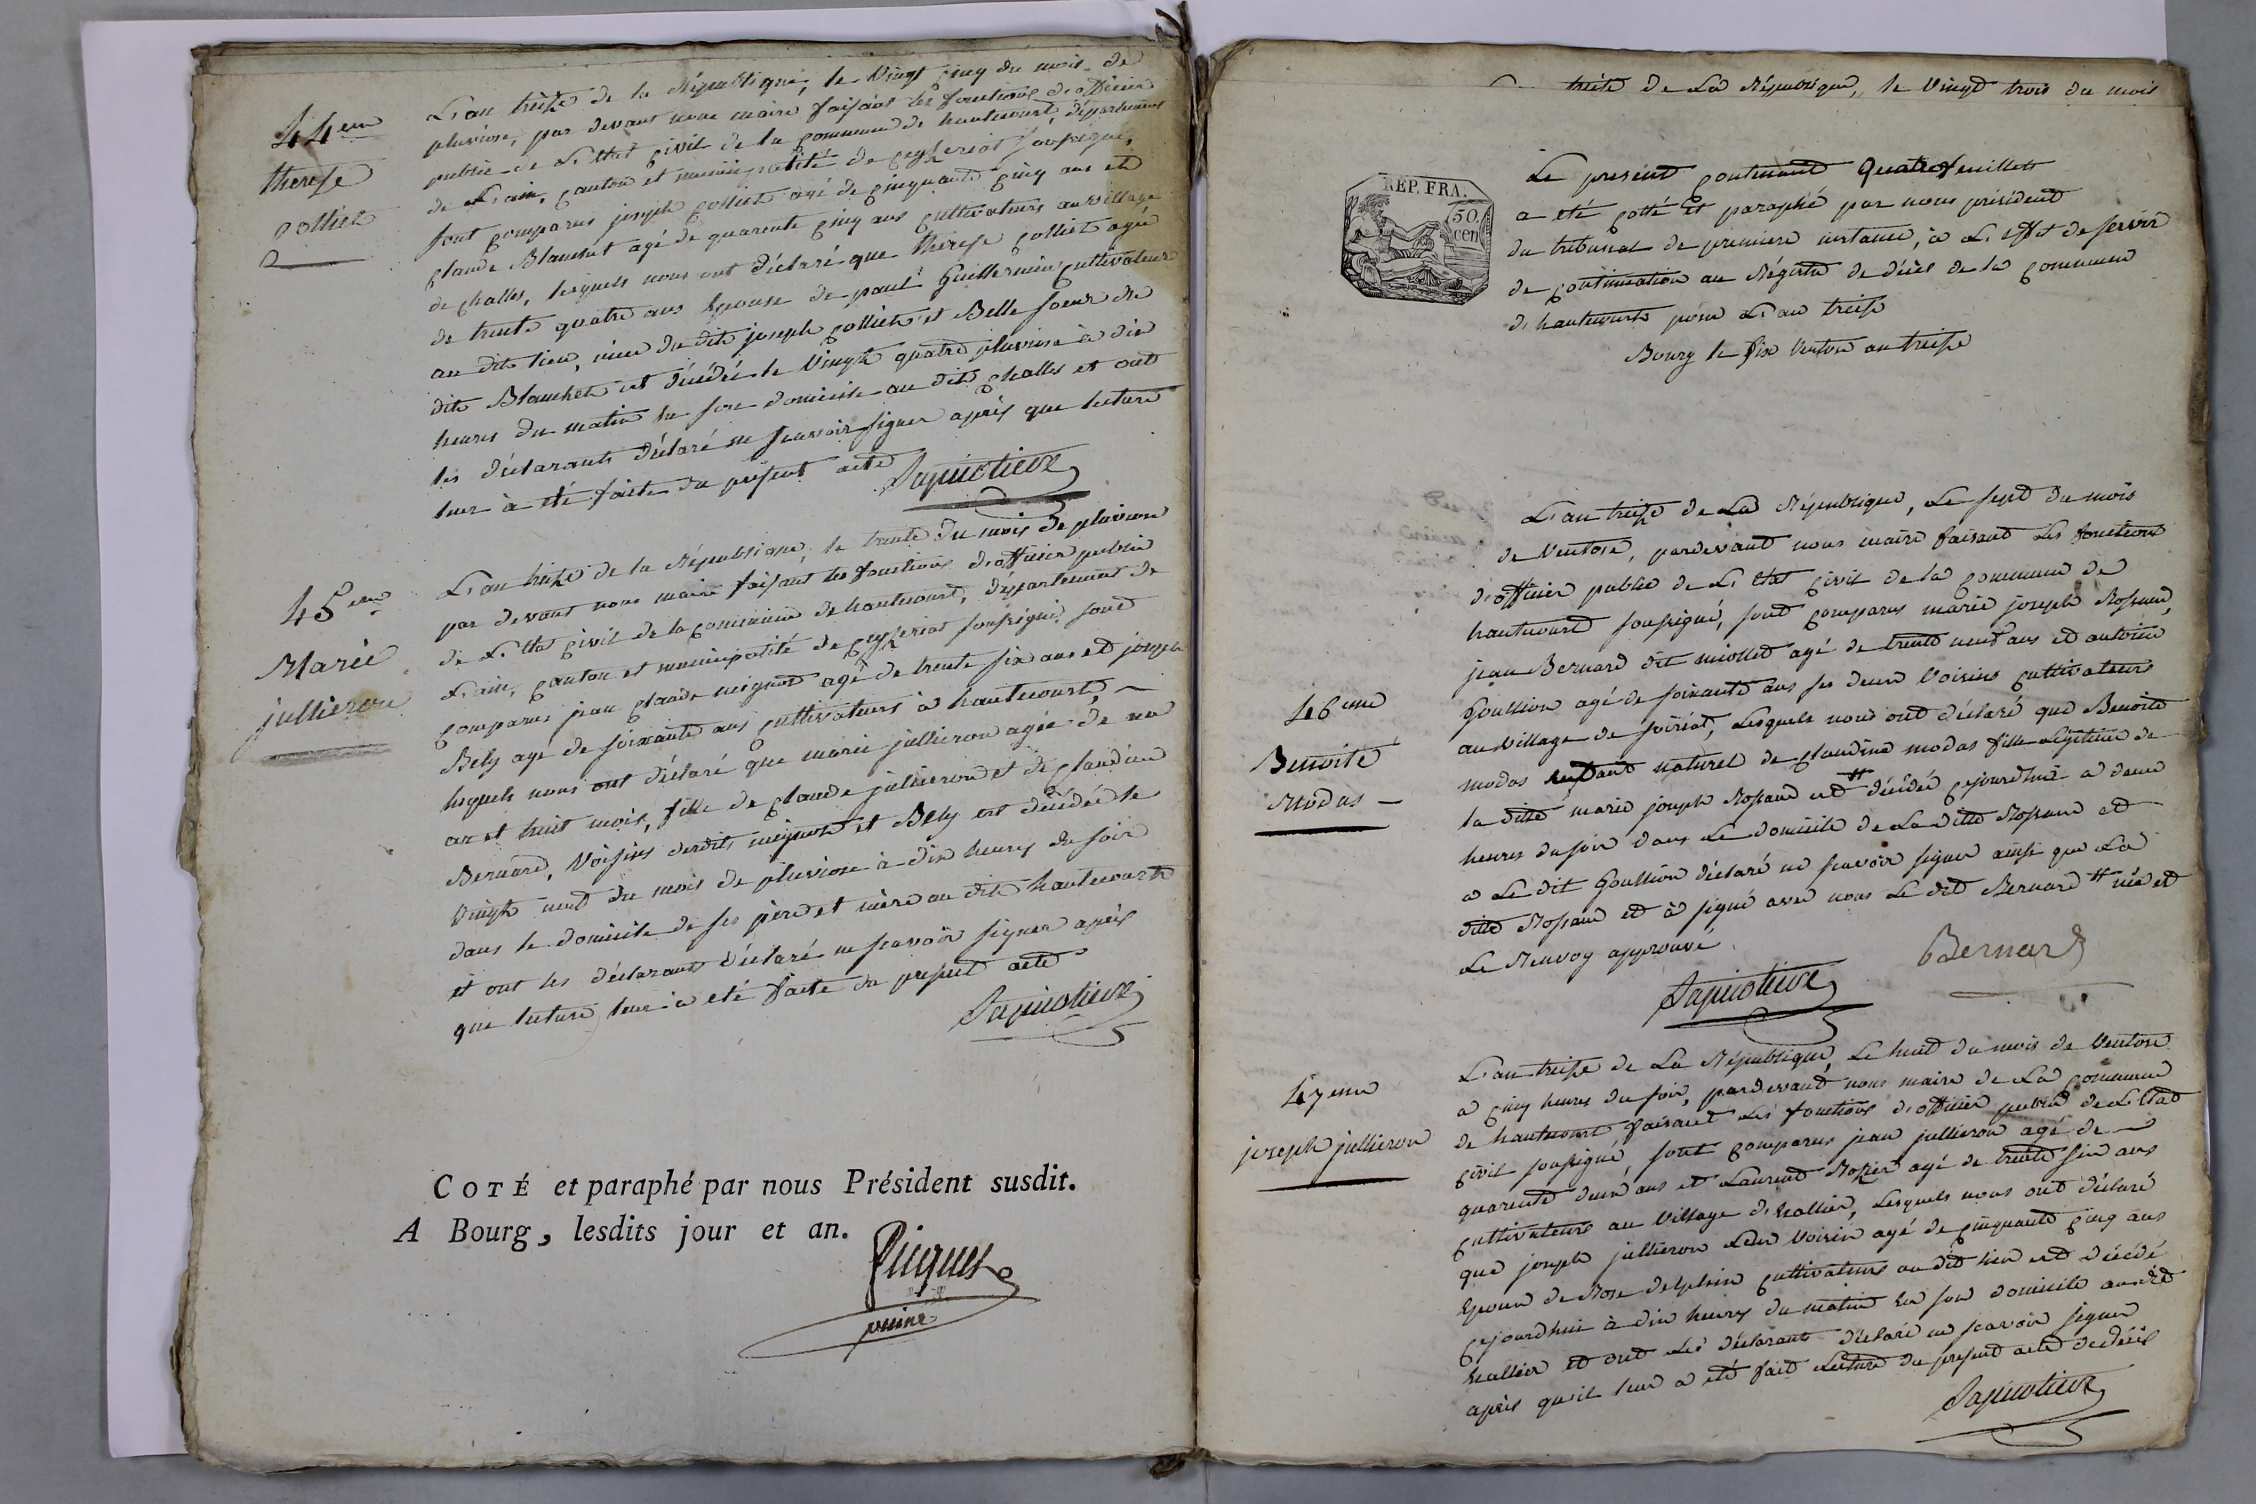 44eme
therese
colliet
L'an treize de la République, le vingt cinq du mois de
pluviose, par devant nous maire faisant les fonctions d'officier
public de L'Etat civil de la commune de hautecourt, département
de L'ain, canton et municipalité de ceyzeriat soussigné,
sont comparus joseph colliet agé de cinquante cinq ans et
claude Blanchet agé de quarente cinq ans cultivateurs au village
de challes, lesquels nous ont déclaré que therese colliet agée
de trente quatre ans Epouse de paul Guillermin cultivateur
au dit lieu, niece du dit joseph colliet et Belle soeur du
dit Blanchet est décédée le vingt quatre pluviose à dix
heures du matin en son domicile au dit challes et ont
les déclarants déclaré ne scavoir signer après que lecture
leur à été faite du présent acte
45eme
Marie
jullieron
L'an treize de la République, le trente du mois de pluviose
par devant nous maire faisant les fonctions d'officier public
de L'Etat civil de la commune de hautecourt, département de
L'ain, canton et municipalité de ceyzeriat soussigné, sont
comparus jean claude mignot agé de trente six ans et joseph
Bely agé de soixante ans cultivateurs à hautecourt,
lesquels nous ont déclaré que marie jullieron agée de un
an et huit mois, fille de claude jullieron et de claudine
Bernard, voisins desdits mignot et Bely est décédée le
vingt neuf du mois de pluviose à dix heures du soir
dans le domicile de ses père et mère au dit hautecourt
et ont les déclarants déclaré ne scavoir signer après
que lecture leur à été faite du present acte
COTÉ et paraphé par nous Président susdit.
A Bourg, lesdits jour et an.
treize de La République, le vingt trois du mois
REP. FRA.
50
cen
Le present contenant quatre feuillets
a eté cotté et paraphé par nous président
du tribunal de premiere instance, à L'effet de servir
de continuation au Régistre de décès de la commune
de hautecourt pour L'an treise
Bourg le six ventose an treise
46eme
Benoite
Modas
L'an treize de La République, Le sept du mois
de ventose, pardevant nous maire faisant Les fonctions
d'officier public de L'Etat civil de la commune de
hautecourt soussigné, sont comparus marie joseph Rossand,
jean Bernard dit miollet agé de trente neuf ans et antoine
Goullion agé de soixante ans ses deux voisins cultivateurs
au village de soiriat, Lesquels nous ont déclaré que Benoite
modas enfant naturel de claudine modas fille Légitime de
la ditte marie joseph Rossand est décédée cejourd'hui à deux
heures du soir dans Le domicile de La ditte Rossand et
a Le dit Goullion déclaré ne scavoir signer ainsi que La
ditte Rossand et à signé avec nous Le dit Bernard née et
Le Renvoy approuvé
Bernard
47eme
joseph jullieron
L'an treise de La République, Le huit du mois de ventose
à cinq heures du soir, pardevant nous maire de La commune
de hautecourt faisant Les fonctions d'officier public de L'Etat
civil soussigné, sont comparus jean jullieron agé de
quarente deux ans et Laurent Rozier agé de trente six ans
cultivateurs au village d'hallier, Lesquels nous ont déclaré
que joseph jullieron Leur voisin agé de cinquante cinq ans
Epoux de Rose delphin cultivateur au dit lieu est décédé
cejourdhui à dix heures du matin en son domicile au dit
hallier et ont Les déclarant déclaré ne scavoir signer
après qu'il leur a été fait Lecture du present acte de décès